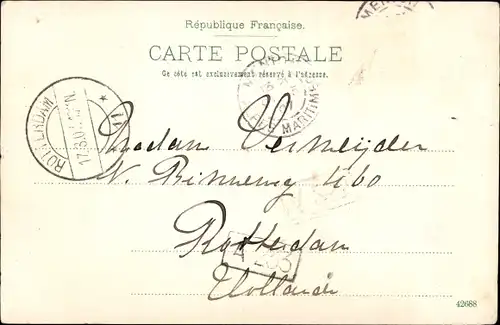 République Française.
CARTE POSTALE
Ce côté est exclusivement réservé à l'adresse.
MENTON
ALPES MARITIMES
ROTTERDAM
17.3.0
Madam Vermeijden
N. Binnenweg 460
Rotterdam
Hollande
42688